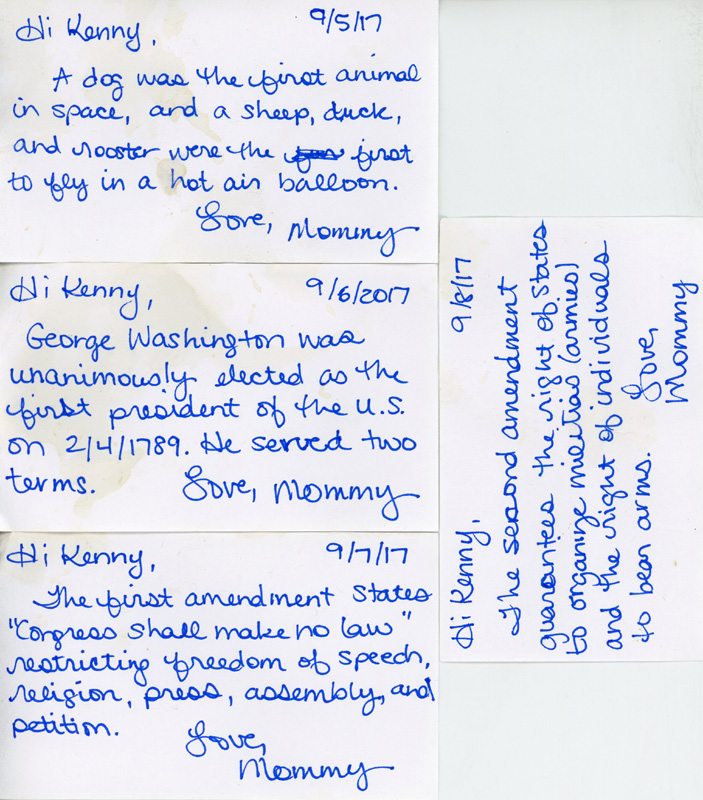 Hi Kenny, 9/5/17
A dog was the first animal
in space, and a sheep, duck,
and rooster were the first
to fly in a hot air balloon.
Love, Mommy
Hi Kenny, 9/6/2017
George Washington was
unanimously elected as the
first president of the U.S.
on 2/4/1789. He served two
terms. Love, Mommy
Hi Kenny, 9/7/17
The first amendment states
"Congress shall make no law"
restricting freedom of speech,
religion, press, assembly, and
petition.
Love,
Mommy
Hi Kenny, 9/8/17
The second amendment
guarantees the right of states
to organize militias (armies)
and the right of individuals
to bear arms. Love,
Mommy